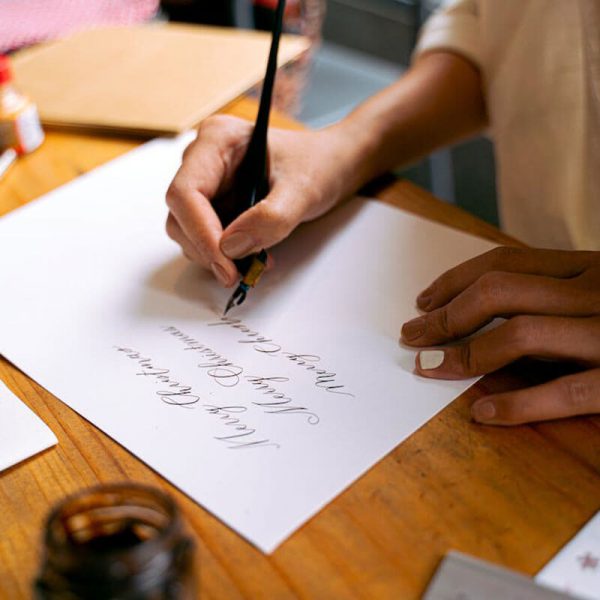 Merry Christmas
Merry Christmas
Merry Christm